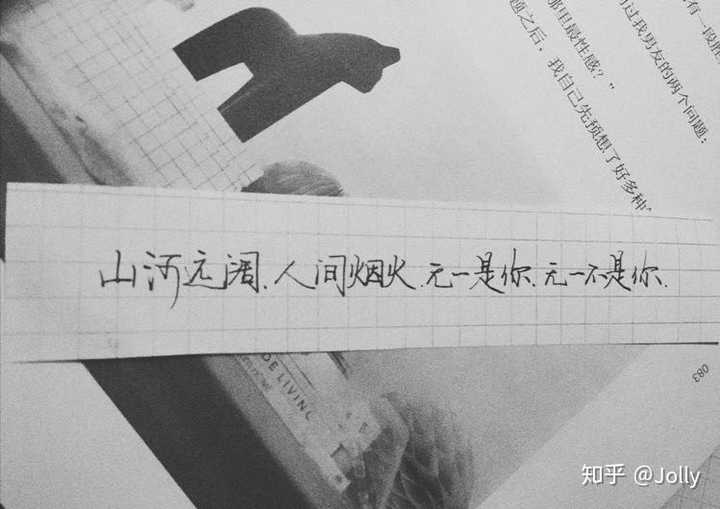 有一段
过我男友的两个问题：
那里最性感？”
题之后，我自己先预想了好多种
山河远阔、人间烟火、无一是你、无一不是你、
DE LIVING
083
知乎 @Jolly